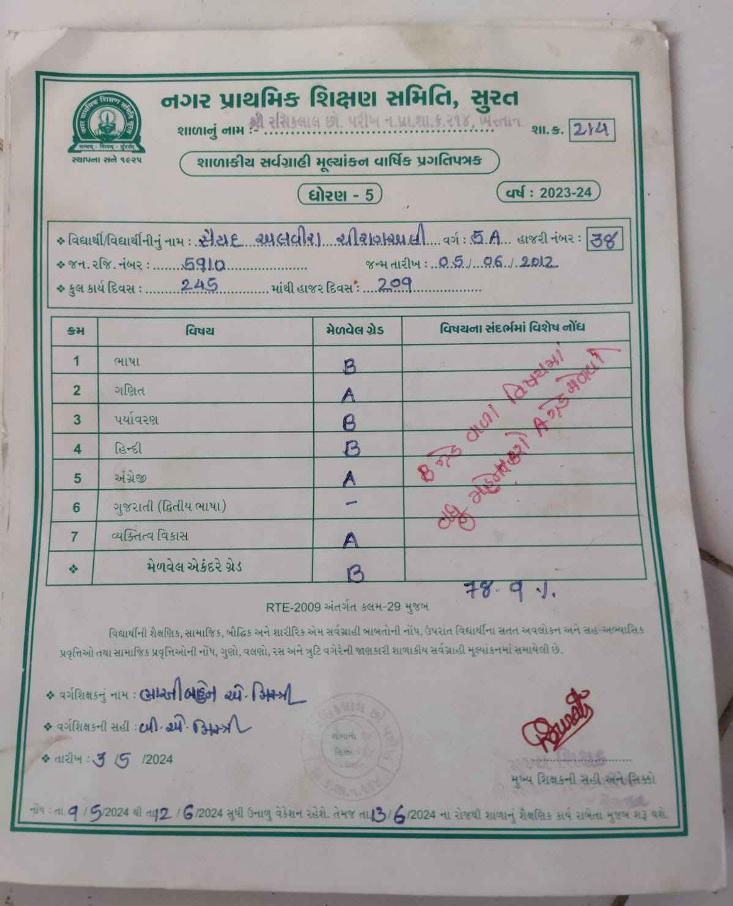 નગર પ્રાથમિક શિક્ષણ સમિતિ, સુરત
શાળાનું નામ :- શ્રી રસિકલાલ છો. પરીખ ન.પ્રા.શા.ક્ર.૨૧૪, શા.ક્ર. 214
સ્થાપના સને ૧૯૨૫
શાળાકીય સર્વગ્રાહી મૂલ્યાંકન વાર્ષિક પ્રગતિપત્રક
ધોરણ - 5
વર્ષ : 2023-24
❖ વિદ્યાર્થી/વિદ્યાર્થીનીનું નામ : સૈયદ અલવીરા ચીરાગઅલી વર્ગ : 5A હાજરી નંબર : 38
❖ જન. રજિ. નંબર : 5910 જન્મ તારીખ : 05/06/2012
❖ કુલ કાર્ય દિવસ : 245 માંથી હાજર દિવસ : 209
ક્રમ વિષય મેળવેલ ગ્રેડ વિષયના સંદર્ભમાં વિશેષ નોંધ
1 ભાષા B
2 ગણિત A
3 પર્યાવરણ B
4 હિન્દી B
5 અંગ્રેજી A
6 ગુજરાતી (દ્વિતીય ભાષા) –
7 વ્યક્તિત્વ વિકાસ A
❖ મેળવેલ એકંદરે ગ્રેડ B
B ગ્રેડ વાળા વિષયમાં
વધુ મહેનત કરો A ગ્રેડ મેળવો
78.9%
RTE-2009 અંતર્ગત કલમ-29 મુજબ
વિદ્યાર્થીની શૈક્ષણિક, સામાજિક, બૌદ્ધિક અને શારીરિક એમ સર્વગ્રાહી બાબતોની નોંધ, ઉપરાંત વિદ્યાર્થીના સતત અવલોકન અને સહ-અભ્યાસિક
પ્રવૃત્તિઓ તથા સામાજિક પ્રવૃત્તિઓની નોંધ, ગુણો, વલણો, રસ અને ત્રુટિ વગેરેની જાણકારી શાળાકીય સર્વગ્રાહી મૂલ્યાંકનમાં સમાયેલી છે.
❖ વર્ગશિક્ષકનું નામ : એ. મિસ્ત્રી
❖ વર્ગશિક્ષકની સહી : બી. એ. મિસ્ત્રી
❖ તારીખ : 3/5/2024
મુખ્ય શિક્ષકની સહી અને સિક્કો
નોંધ : તા. 9/5/2024 થી તા. 12/6/2024 સુધી ઉનાળુ વેકેશન રહેશે. તેમજ તા. 13/6/2024 ના રોજથી શાળાનું શૈક્ષણિક કાર્ય રાબેતા મુજબ શરૂ થશે.